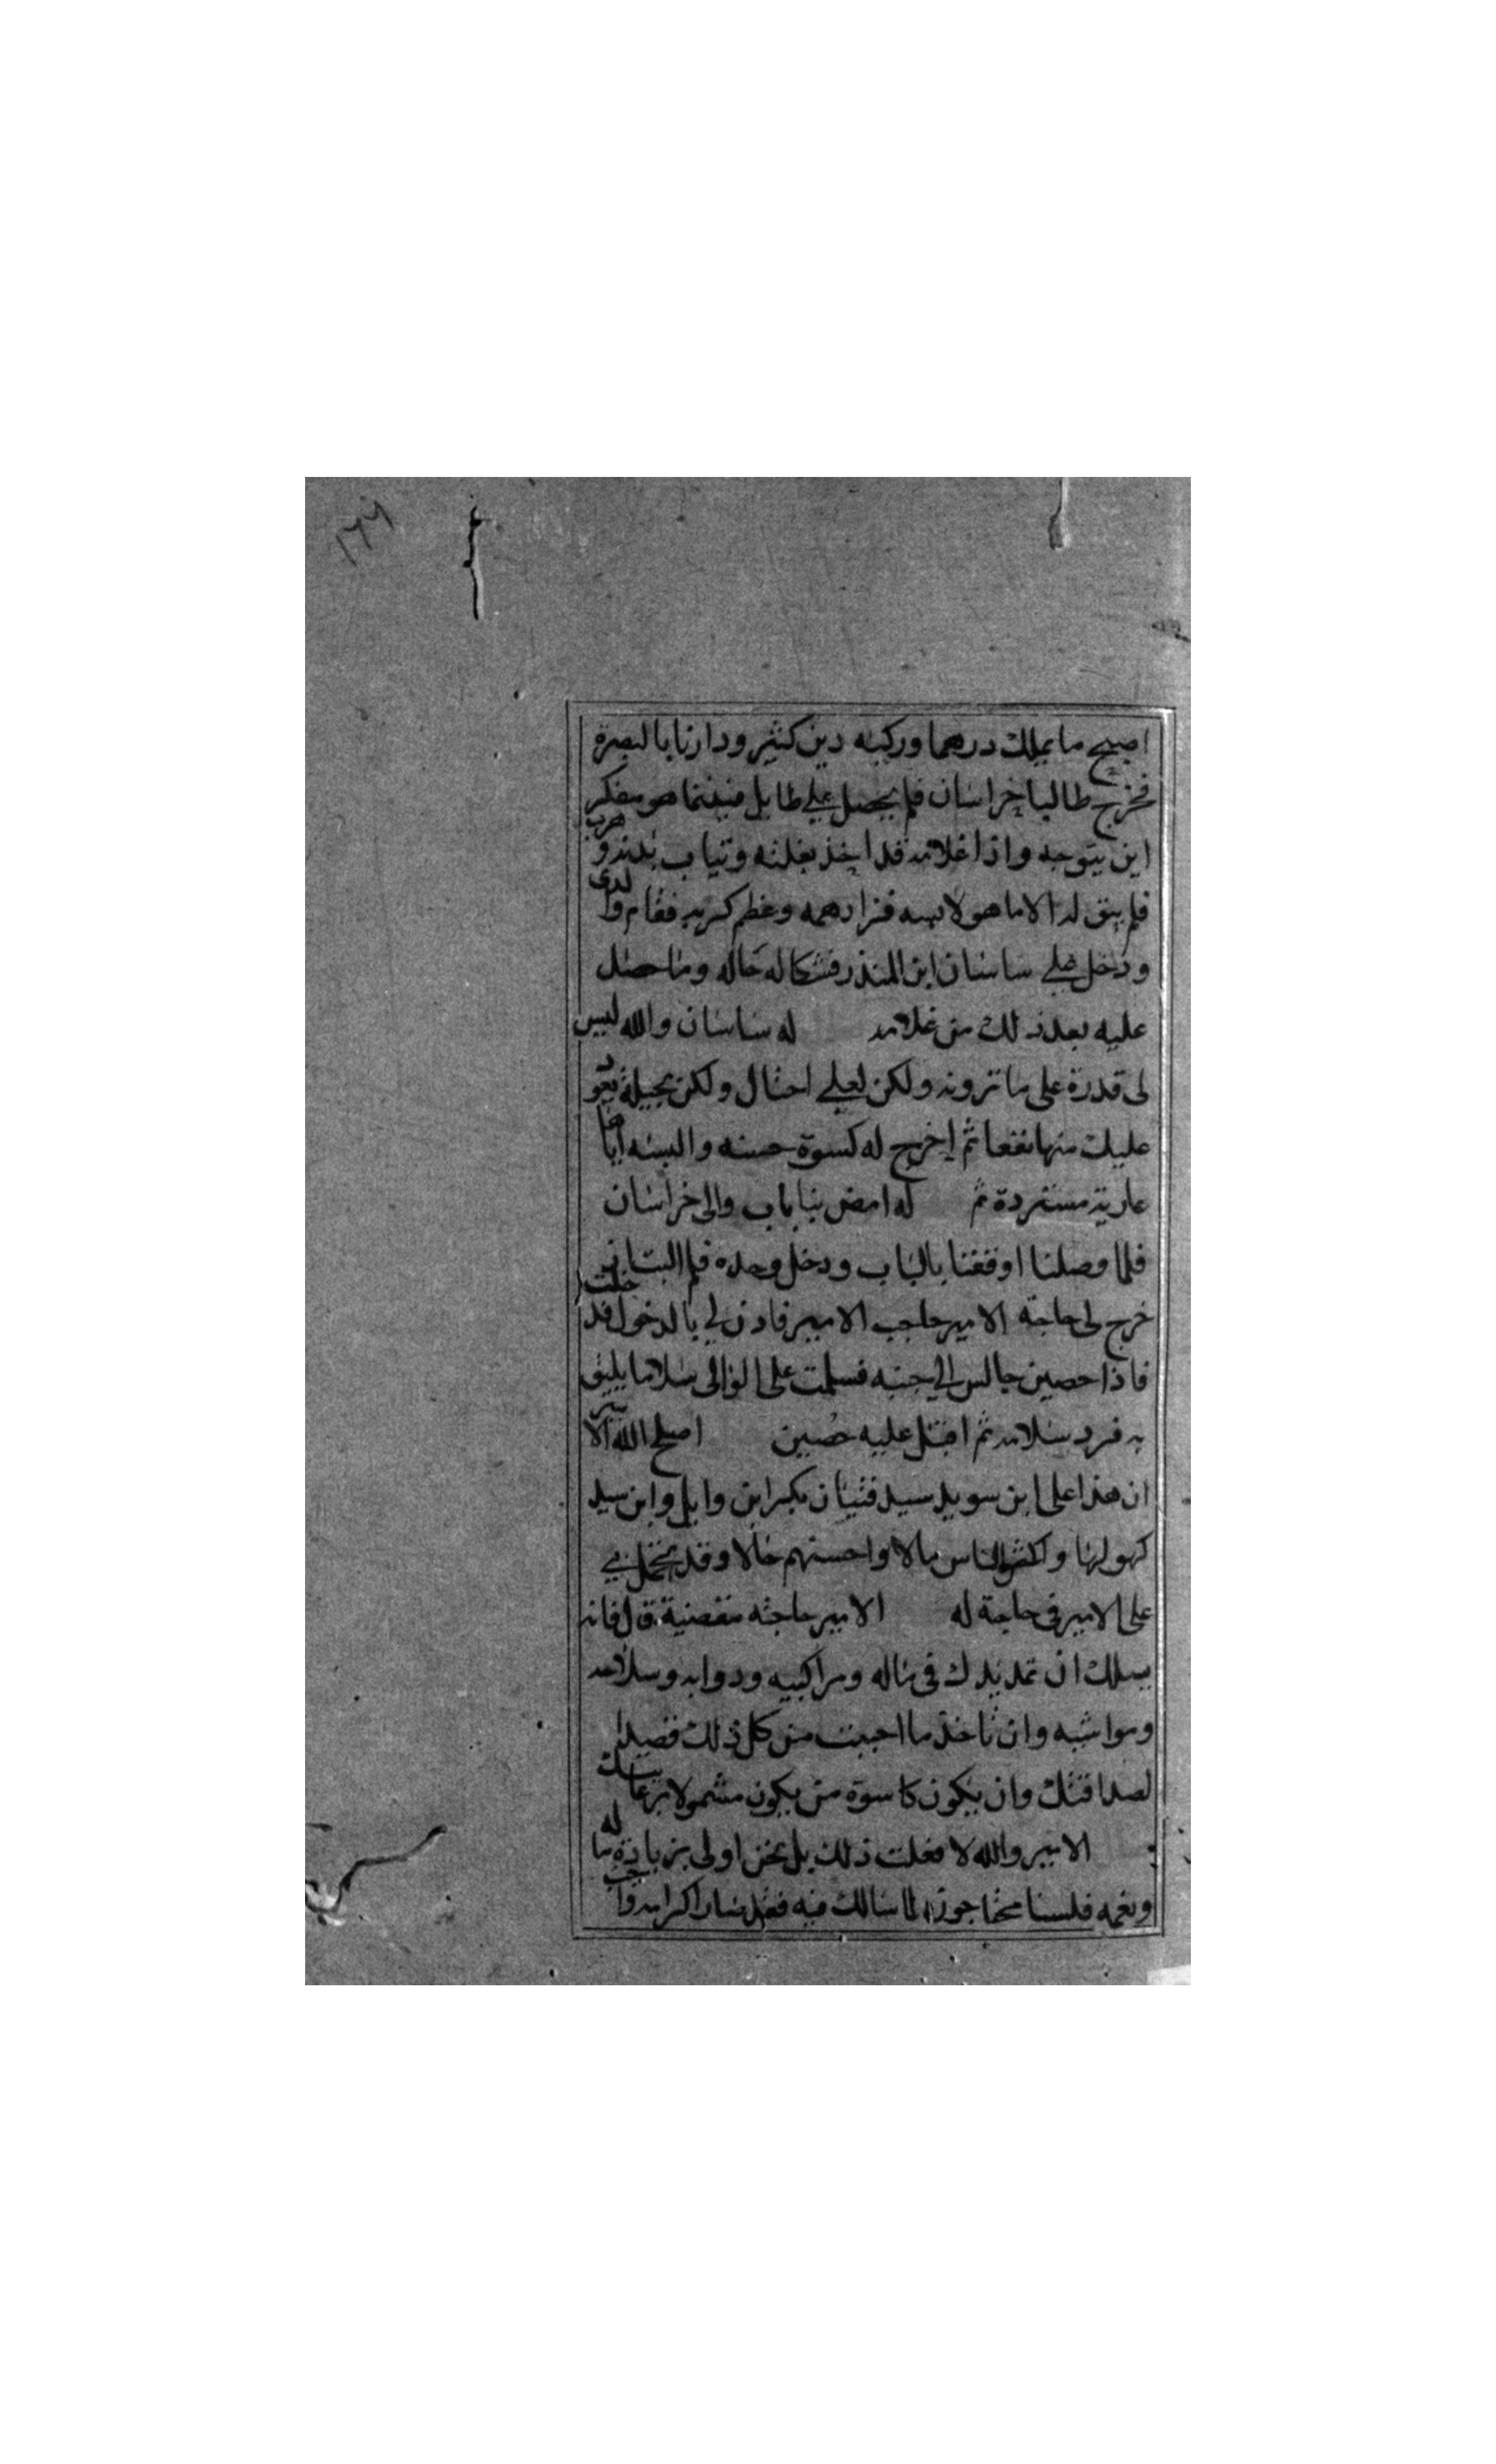 ١٦٩
اصبح ما يملك درهما وركبه دين كثير ودارنا بالبصرة
فخرج طالبا خراسان فلم يحصل علي طايل فبينما هو مفكر
اين يتوجه واذا غلامه قد اخذ بغلته وثياب بدنه وهرب
فلم يبق له الا ما هو لابسه فزاد همه وعظم كربه فقام وا لدى
ودخل علي ساسان ابن المنذر فشكا له حاله وما حصل
عليه بعد ذلك من غلامه له ساسان والله ليس
لى قدرة على ما ترونه ولكن لعلي احتال ولكن بحيلة يعود
عليك منها نفعا ثم اخرج له كسوة حسنه والبسه اياها
عارية مستردة ثم له امض بنا باب والى خراسان
فلما وصلنا اوقفنا بالباب ودخل وحده فلم البث ان
خرج لى حاجة الامير حاجب الامير فاذن لي بالدخول فدخلت
فاذا حصين جالس الي جنبه فسلمت على الوالى سلاما يليق
به فرد سلامه ثم اقبل عليه حصين اصلح الله الامير
ان هذا على ابن سويد سيد فتيان بكر ابن وايل وابن سيد
كهولها واكثر الناس مالا واحسنهم حالا وقد تحمل بي
على الامير فى حاجة له الامير حاجته مقضية قال فانه
يسلك ان تمد يدك فى ماله ومراكبه ودوابه وسلاحه
ومواشيه وان تاخذ ما احببت من كل ذلك قصدا
لصداقتك وان يكون كاسوة من يكون مشمولا برعايتك
الامير والله لا فعلت ذلك بل نحن اولى بزيادة ماله
ونعمه فلسنا محتاجون لما سالك فيه فقد صار اكرامه واجب